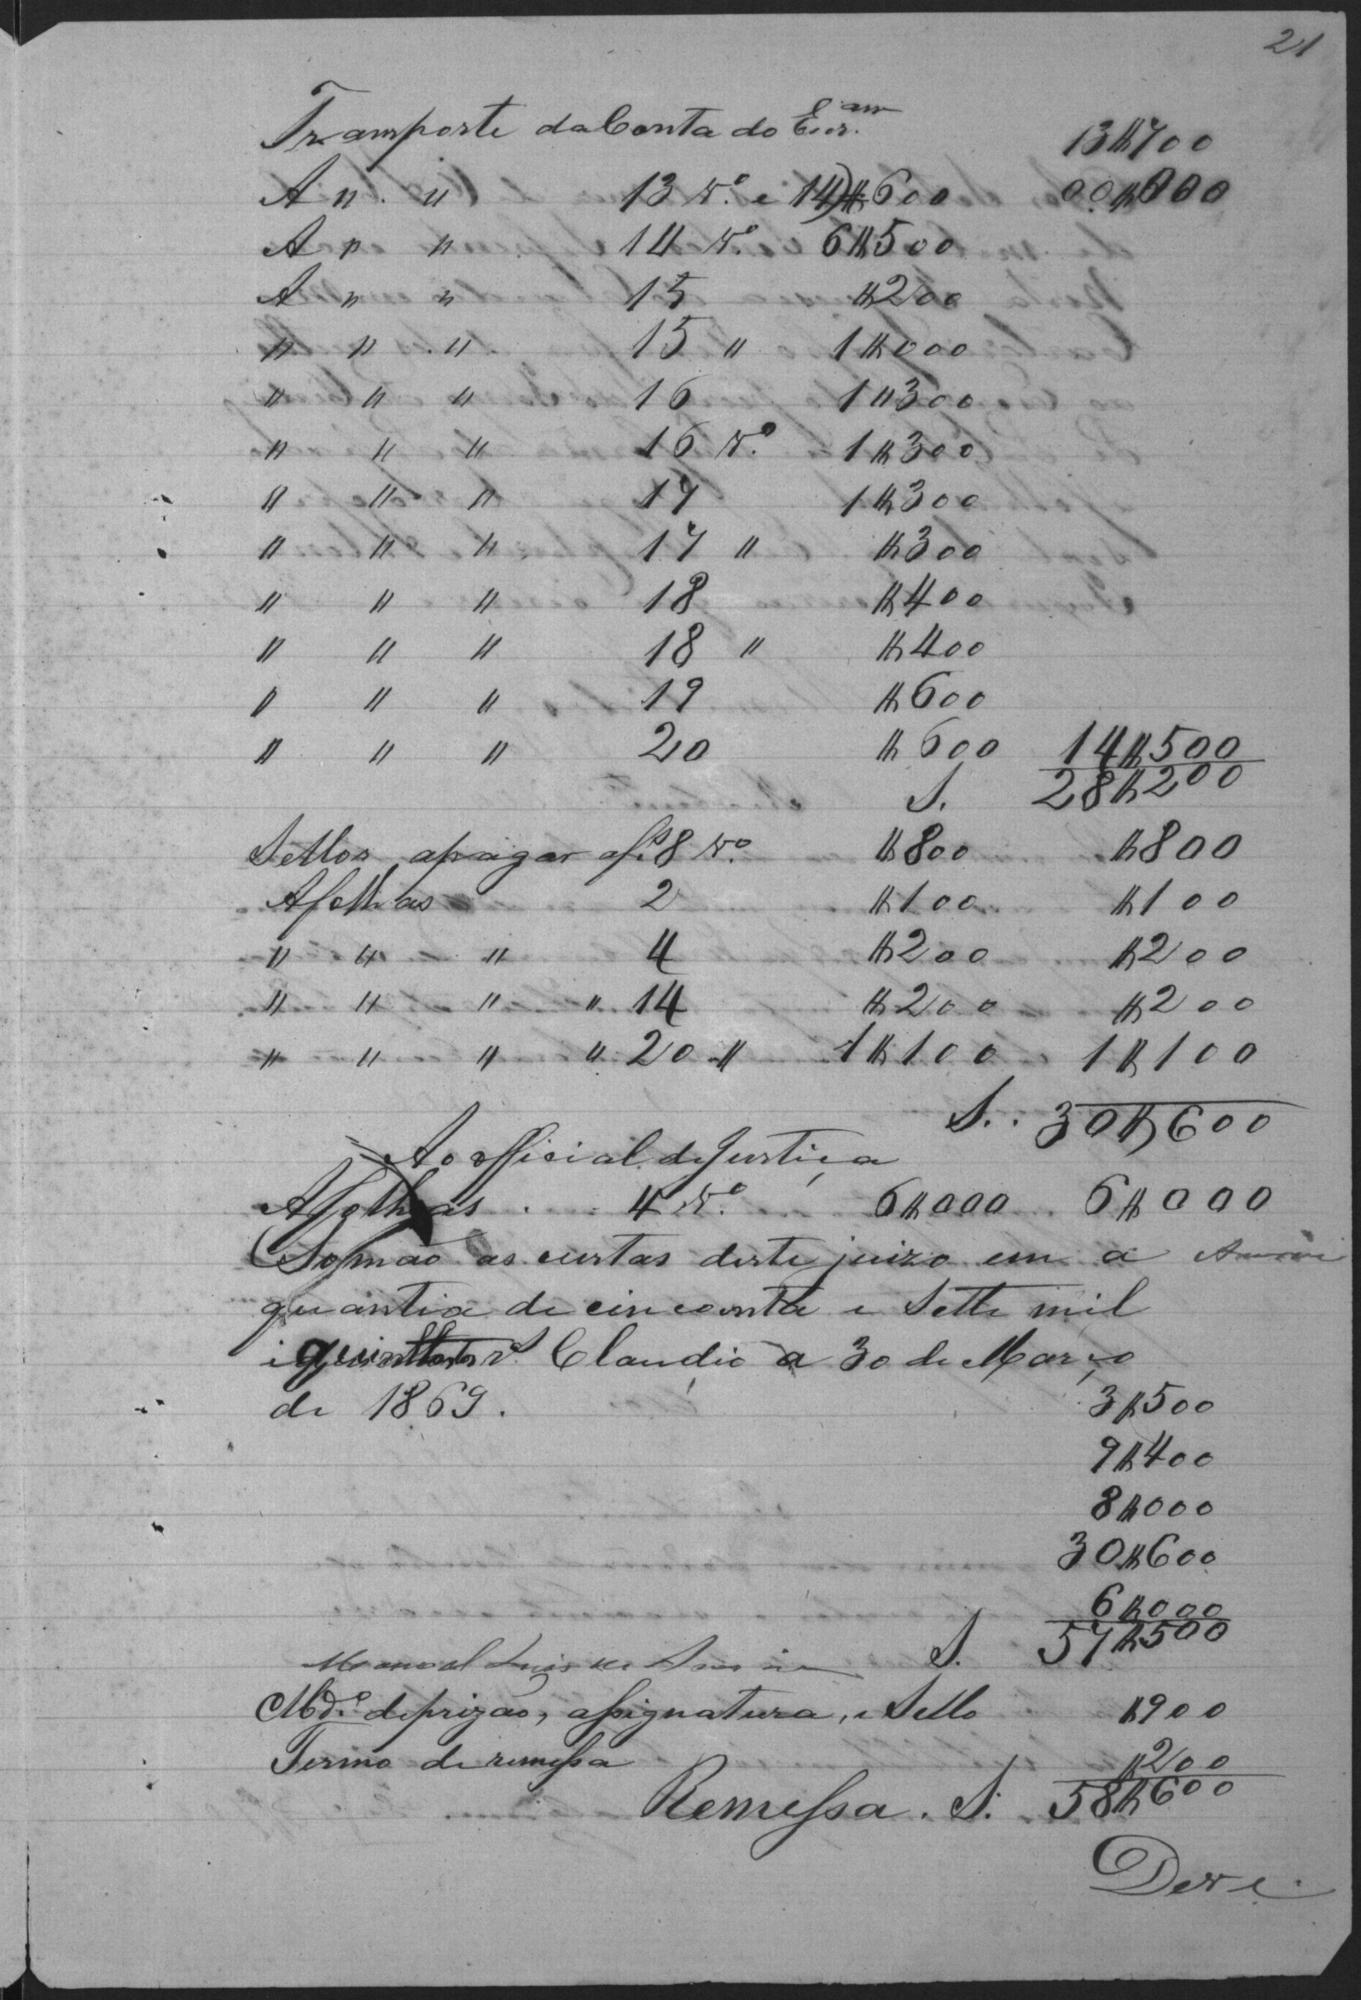 21
Transporte da Conta do Escr.am 13$700
A n. " 13 v.º e 14 $600 00$000
A " " 14 v.º 6$500
A " " 15 $200
" " " 15 " 1$000
" " " 16 1"300
" " " 16 v.º 1$300
" " " 17 1$300
" " " 17 " $300
" " " 18 $400
" " " 18 " $400
" " " 19 $600
" " " 20 $600 14$500
S. 28$200
Sellos apagar afs. 8 v.º $800 $800
Afolhas 2 $100 $100
" " " 4 $200 $200
" " " " 14 $200 $200
" " " " 20 " 1$100 1$100
S. 30$600
Ao official de Justiça
Afolhas 4 v.º 6$000 6$000
Somão as custas deste juizo em a
quantia de cincoenta e sette mil
e quinhentos rs. Claudio a 30 de Março
de 1869. 3$500
9$400
8$000
30$600
6$000
S. 57$500
Manoel Luis de
Md.º de prizão, assignatura, e Sello $900
Termo de remessa $200
Remessa. S. 58$600